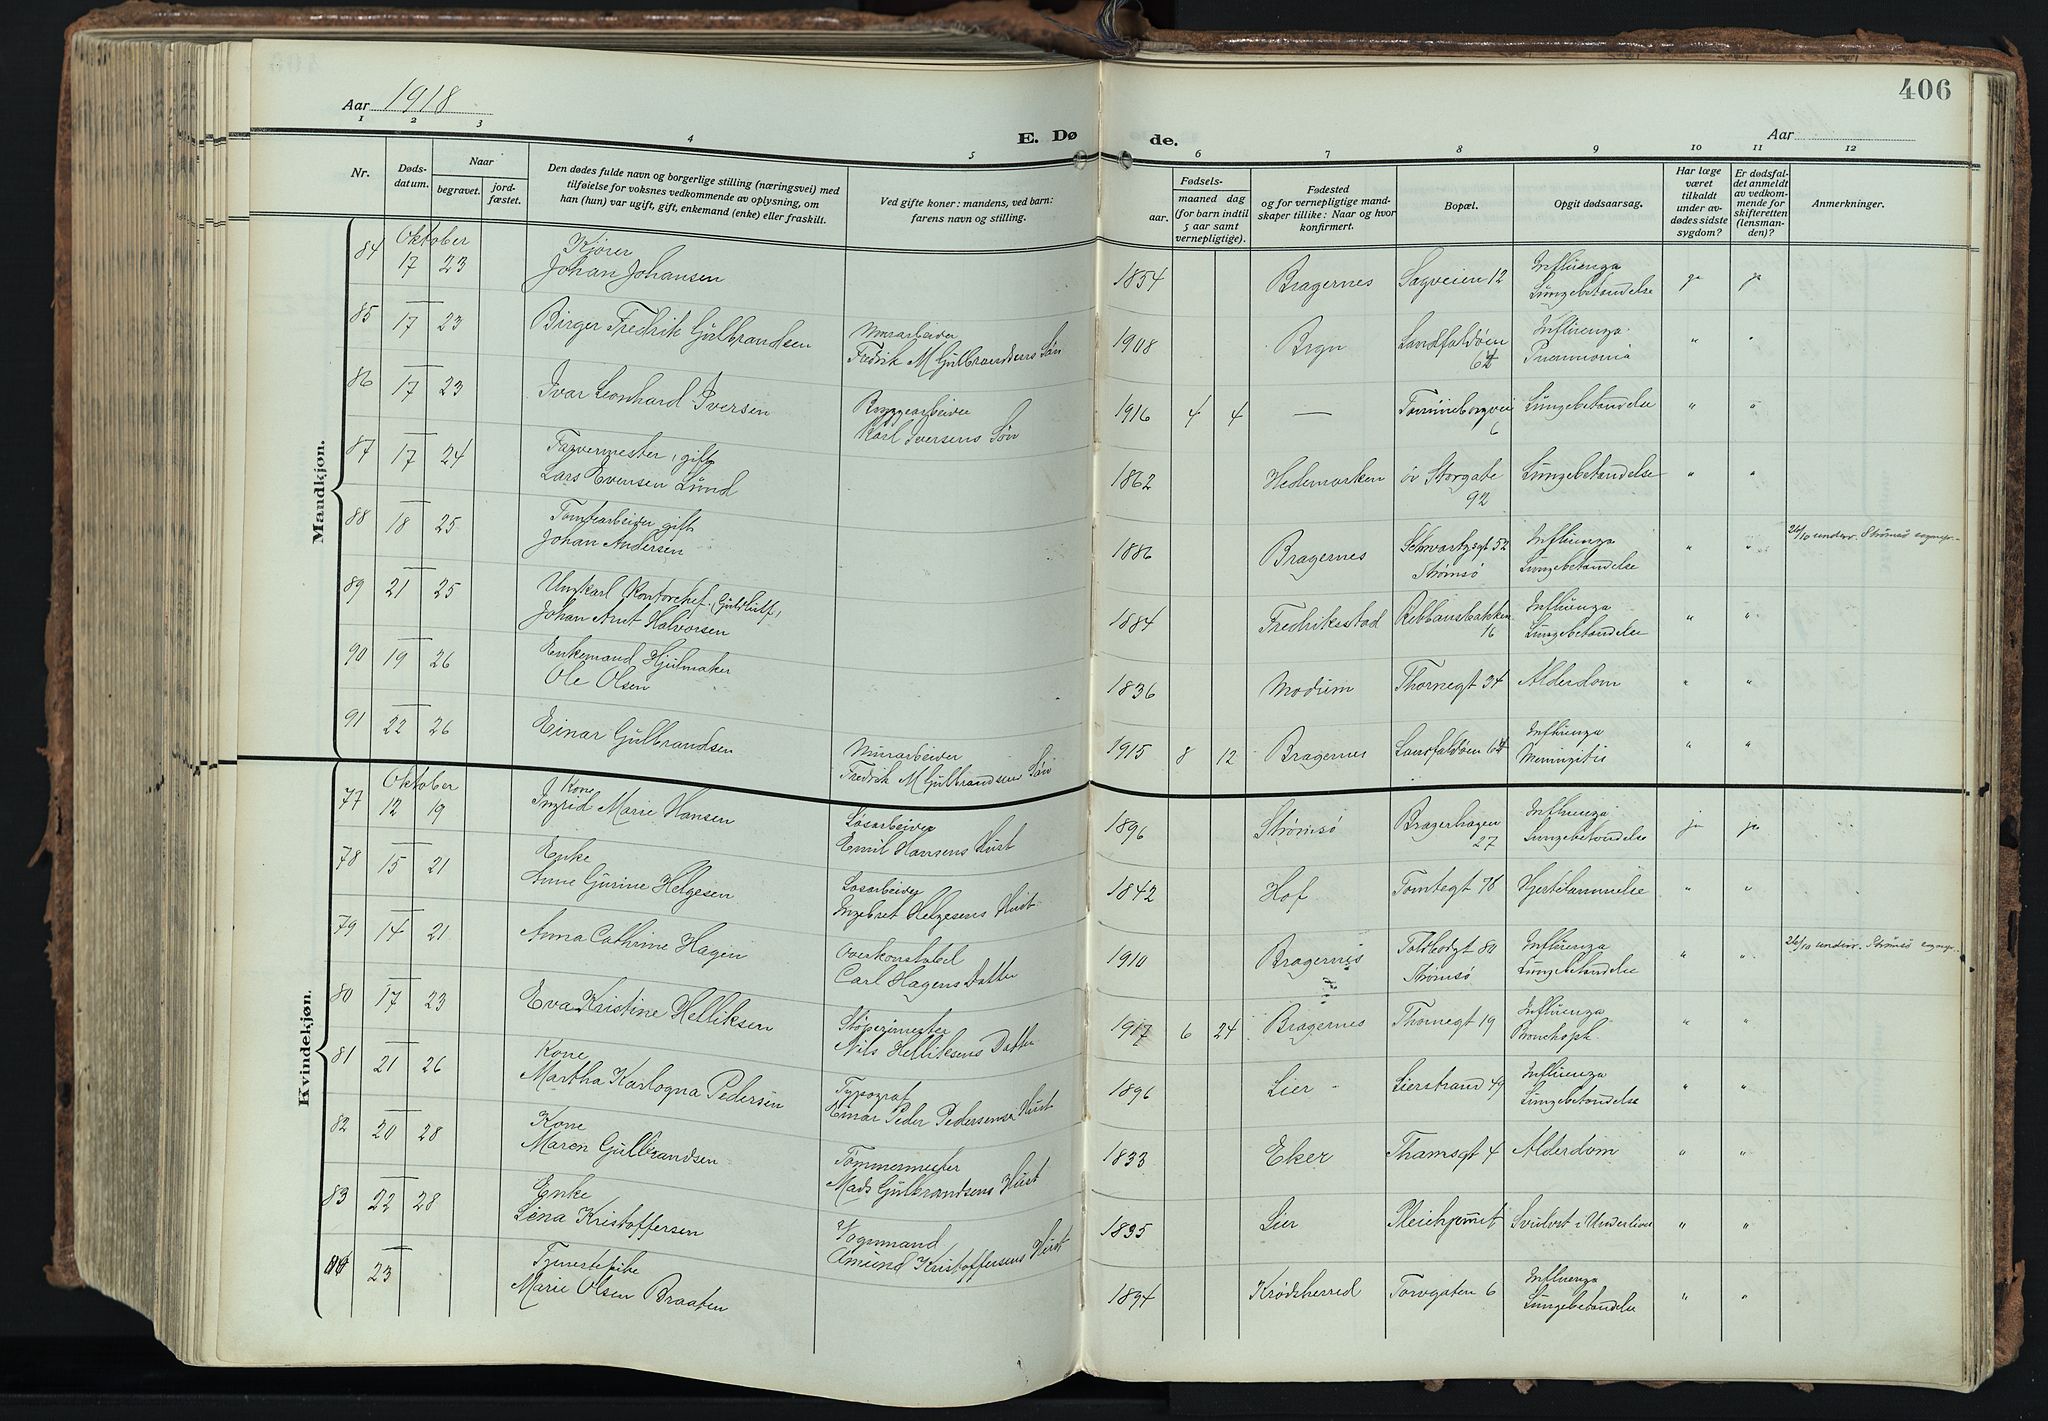 406
Aar 1918
E. Dø de.
Aar
1 2 3 4 5 6 7 8 9 10 11 12
Nr.
Døds-
datum.
Naar
begravet.
jord-
fæstet.
Den dødes fulde navn og borgerlige stilling (næringsvei) med
tilføielse for voksnes vedkommende av oplysning, om
han (hun) var ugift, gift, enkemand (enke) eller fraskilt.
Ved gifte koner: mandens, ved barn:
farens navn og stilling.
Fødsels-
aar. maaned dag
(for barn indtil
5 aar samt
vernepligtige).
Fødested
og for vernepligtige mand-
skaper tillike: Naar og hvor
konfirmert.
Bopæl.
Opgit dødsaarsag.
Har læge
været
tilkaldt
under av-
dødes sidste
sygdom?
Er dødsfal-
det anmeldt
av vedkom-
mende for
skifteretten
(lensman-
den)?
Anmerkninger.
Mandkjøn.
Oktober
Kjører Influenza
84 17 23 Johan Johansen 1854 Bragernes Sagveien 12 Lungebetændelse ja ja
85 17 23 Birger Fredrik Gulbrandsen Murarbeider 1908 Landfaldøen Influenza
Fredrik M Gulbrandsens Søn 64 Pneumonia " "
86 17 23 Ivar Leonhard Iversen Bryggearbeider 1916 4 4 — Lungebetændelse " "
Karl Iversens Søn 6
87 17 24 Farvermester, gift
Lars Evensen Lund 1862 Hedemarken øv Storgate Lungebetændelse " "
92
88 18 25 Tomtearbeider gift Schwartzsgt 52 Influenza
Johan Andersen 1886 Bragernes Strømsø Lungebetændelse " " 26/10 underr. Strømsø sognepr.
89 21 25 Ungkarl Kontorchef
Johan Arnt Halvorsen 1884 Fredriksstad 16 Influenza
Lungebetændelse " "
90 19 26 Enkemand Hjulmaker
Ole Olsen 1836 Modum Thornegt 34 Alderdom " "
91 22 26 Einar Gulbrandsen Murarbeider 1915 8 12 Bragernes Landfaldøen 64 Influenza
Fredrik M Gulbrandsens Søn Meningitis " "
Kvindekjøn.
Oktober
Kone
77 12 19 Ingrid Marie Hansen Løsarbeider 1896 Strømsø Bragerhagen Influenza
Emil Hansens Hust 27 Lungebetændelse ja ja
78 15 21 Enke
Anne Gurine Helgesen Løsarbeider 1842 Hof Tomtegt 78 Hjertelammelse " "
Ingebret Helgesens Hust
79 14 21 Anna Cathrine Hagen Overkonstabel 1910 Bragernes Toldbodgt 80 Influenza " " 26/10 underr. Strømsø sognepr.
Carl Hagens Datter Strømsø Lungebetændelse
80 17 23 Eva Kristine Helliksen Støperimester 1917 6 24 Bragernes Thornegt 19 Influenza
Nils Helliksens Datter " "
81 21 26 Kone
Martha Karlogna Pedersen Typograf 1896 Lier Lierstrand 49 Influenza
Peder Pedersens Hust Lungebetændelse " "
82 20 28 Kone
Maren Gulbrandsen Tømmermester 1833 Eker Thamsgt 4 Alderdom " "
Mads Gulbrandsens Hust
83 22 28 Enke
Lina Kristoffersen Vognmand 1835 Lier Svulst i Underlivet " "
Amund Kristoffersens Hust
23 Tjenestepike
Marie Olsen Braaten 1894 Krødsherred Torvgaten 6 Influenza
Lungebetændelse " "